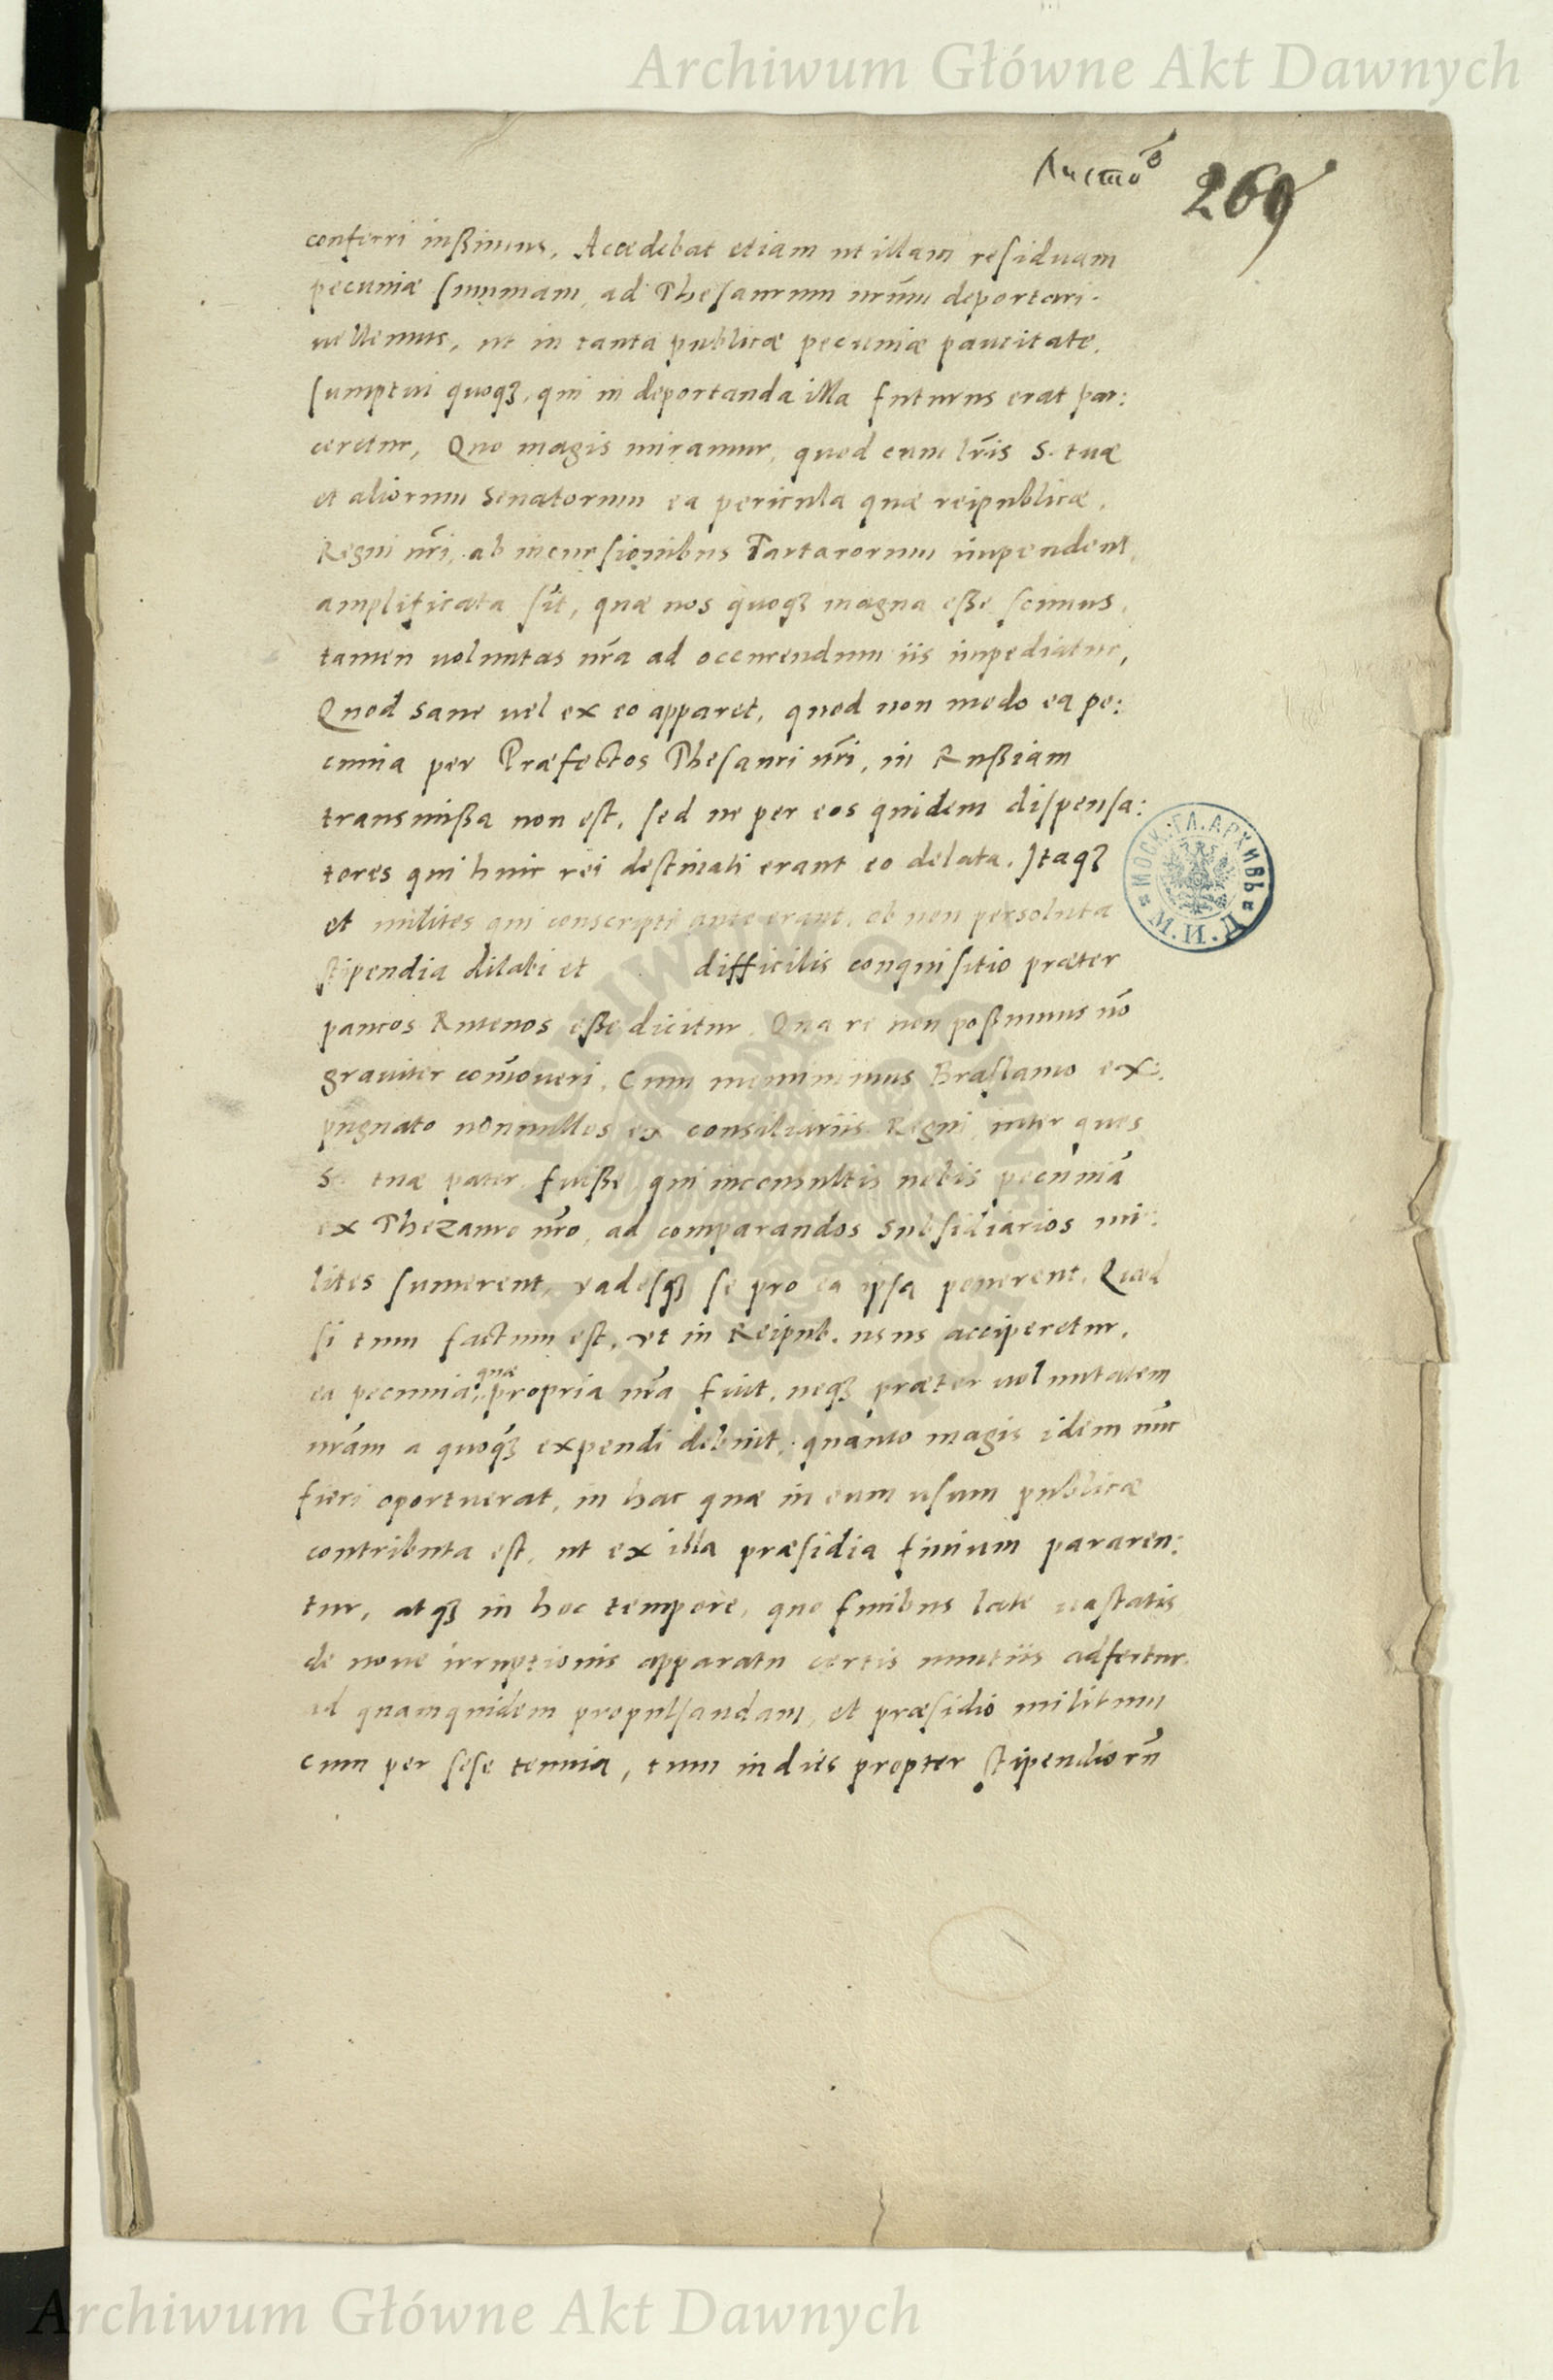 Archiwum Główne Akt Dawnych
Листо 269
conferri iußimus, Accedebat etiam ut illam residuam
pecuniæ summam, ad Thesaurum nr̃um deportari
uellemus, ut in tanta publicæ pecuniæ paucitate,
sumptui quoqꝫ, qui in deportanda illa futurus erat par:
ceretur, Quo magis miramur, quod cum lr̃is S. tuæ
et aliorum Senatorum ea pericula quæ reipublicæ,
Regni nr̃i, ab incursionibus Tartarorum impendent,
amplificata sit, quæ nos quoqꝫ magna eße scimus,
tamen uoluntas nr̃a ad occurrendum iis impediatur,
Quod sane uel ex eo apparet, quod non modo ea pe:
cunia per Præfectos Thesauri nr̃i, in Rußiam
transmißa non est, sed ne per eos quidem dispensa:
tores qui huic rei destinati erant eo delata. Itaqꝫ
et milites qui conscripti ante erant, ob non persoluta
stipendia dilabi et difficilis conquisitio præter
paucos Rutenos eße dicitur. Qua re non poßumus nõ
grauiter com̃oueri, Cum meminimus Braslawo ex:
pugnato nonnullos ex consiliariis Regni inter quos
S. tuæ pater fuiße, qui inconsultis nobis pecuniã
ex Thezauro nr̃o, ad comparandos subsidiarios mi:
lites sumerent, vadesqꝫ se pro ea ipsa ponerent, Quod
si tum factum est, vt in Reipub. usus acciperetur,
ea pecunia, quæ propria nr̃a fuit, neqꝫ præter uoluntatem
nr̃am a quoqꝫ expendi debuit, quanto magis idem nũc
fieri oportuerat, in hac quæ in eum usum publicæ
contributa est, ut ex illa præsidia finium pararen:
tur, atqꝫ in hoc tempore, quo finibus late uastatis
de noue irruptionis apparatu certis nuntiis adfertur.
ad quamquidem propulsandam, et præsidio militum
cum per sese tenuia, tum indies propter stipendiorũ
МОСК. ГЛ. АРХИВЪ
М. И. Д.
Archiwum Główne Akt Dawnych